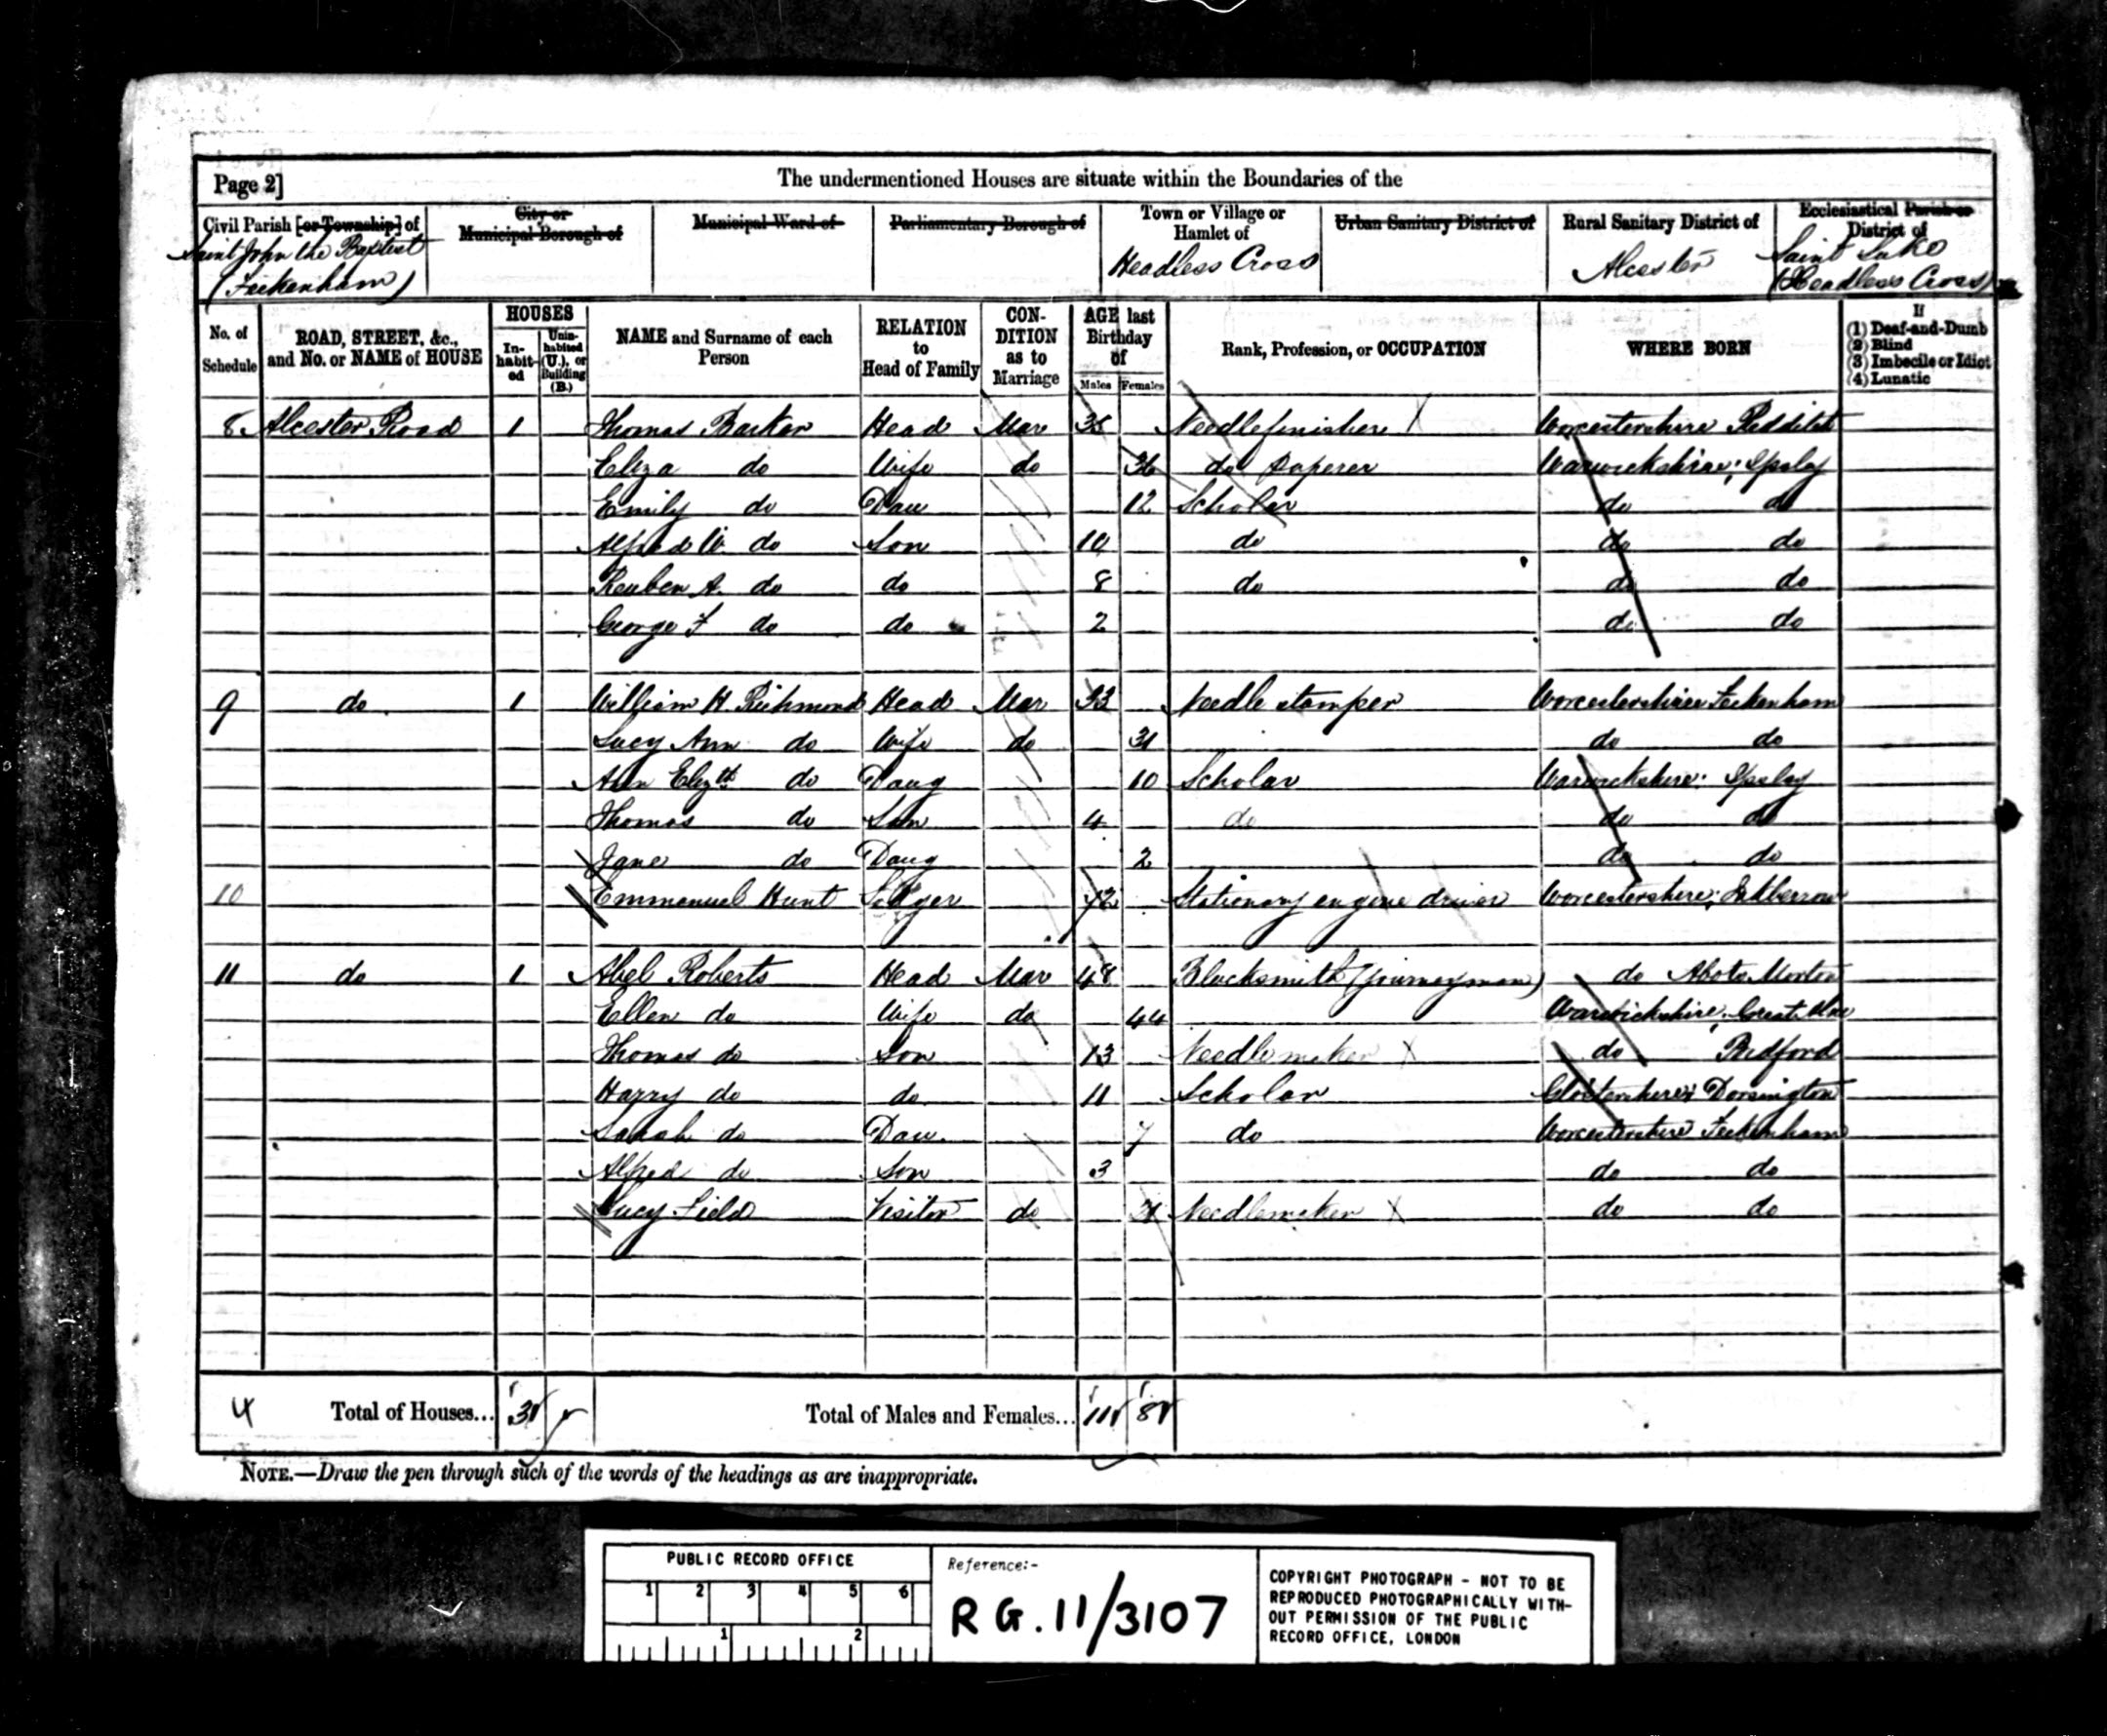 Page 2]
The undermentioned Houses are situate within the Boundaries of the
Civil Parish [or Township] of
Saint John the Baptist
(Feckenham)
City or
Municipal Borough of
Municipal Ward of
Parliamentary Borough of
Town or Village or
Hamlet of
Headless Cross
Urban Sanitary District of
Rural Sanitary District of
Alcester
Ecclesiastical Parish or
District of
Saint Luke
(Headless Cross)
No. of
Schedule
ROAD, STREET, &c.,
and No. or NAME of HOUSE
HOUSES
In-
habit-
ed
Unin-
habited
(U.), or
Building
(B.)
NAME and Surname of each
Person
RELATION
to
Head of Family
CON-
DITION
as to
Marriage
AGE last
Birthday
of
Males Females
Rank, Profession, or OCCUPATION
WHERE BORN
If
(1) Deaf-and-Dumb
(2) Blind
(3) Imbecile or Idiot
(4) Lunatic
8 Alcester Road 1 Thomas Barker Head Mar 38 Needlefinisher X Worcestershire Redditch
Eliza do Wife do 36 do Paperer Warwickshire; Ipsley
Emily do Dau 12 Scholar do do
Alfred W. do Son 10 do do do
Reuben A. do do 8 do do do
George F do do 2 do do
9 do 1 William H. Richmond Head Mar 33 Needle stamper Worcestershire Feckenham
Lucy Ann do Wife do 31 do do
Ann Elizth do Daug 10 Scholar Warwickshire; Ipsley
Thomas do Son 4 do do do
Jane do Daug 2 do do
10 Emmanuel Hunt Lodger 72 Stationary engine driver Worcestershire; Inkberrow
11 do 1 Abel Roberts Head Mar 48 Blacksmith (journeyman) do Abots Morton
Ellen do Wife do 44 Warwickshire; Great Alne
Thomas do Son 13 Needlemaker X do Bidford
Harry do do 11 Scholar Dorsington
Sarah do Dau. 7 do Worcestershire Feckenham
Alfred do Son 3 do do
Lucy Field Visitor do Needlemaker X do do
4 Total of Houses... 3 Total of Males and Females... 11 8
NOTE.—Draw the pen through such of the words of the headings as are inappropriate.
PUBLIC RECORD OFFICE
1 2 3 4 5 6
1 2
Reference:-
RG. 11/3107
COPYRIGHT PHOTOGRAPH - NOT TO BE
REPRODUCED PHOTOGRAPHICALLY WITH-
OUT PERMISSION OF THE PUBLIC
RECORD OFFICE, LONDON